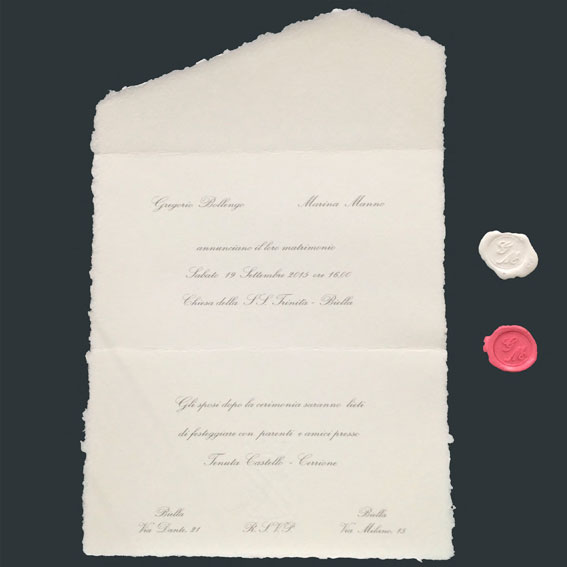 Gregorio Bollengo Marina Manno
annunciano il loro matrimonio
Sabato 19 Settembre 2015 ore 16.00
Chiesa della S.S. Trinita - Biella
Gli sposi dopo la cerimonia saranno lieti
di festeggiare con parenti e amici presso
Tenuta Castello - Cerrione
Biella Biella
Via Dante, 21 R.S.V.P. Via Milano, 15